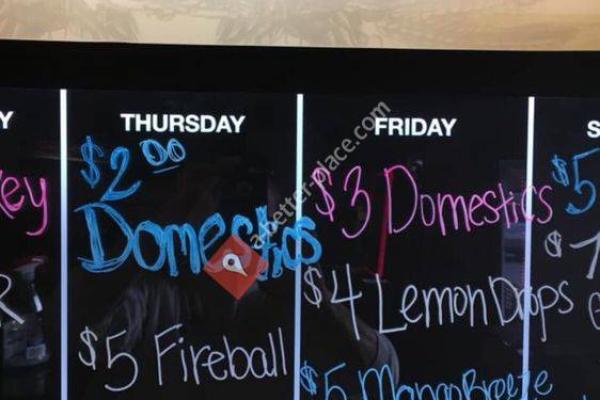 Y
THURSDAY
FRIDAY
S
key
$2.00
Domestics
$5 Fireball
R
$3 Domestics
$4 Lemon Drops
$5 Mango Breeze
$5
$
a-better-place.com